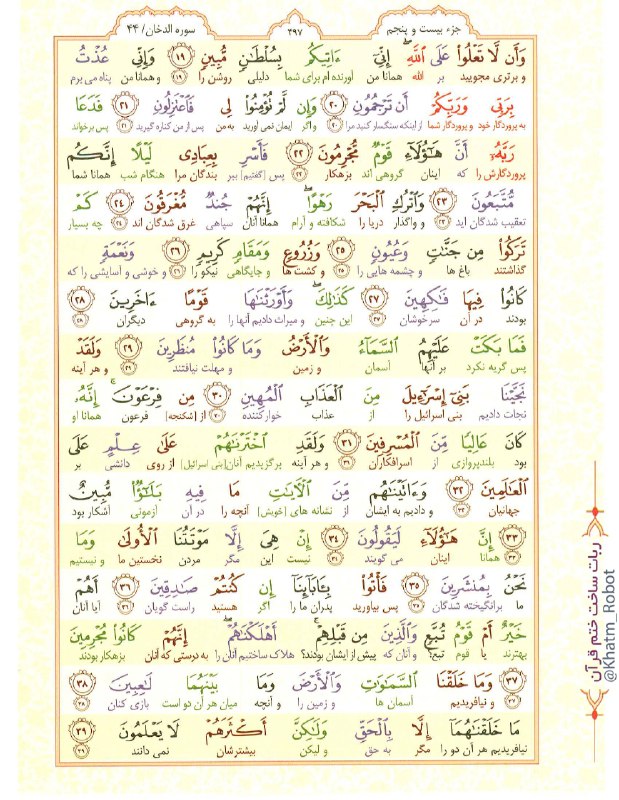 جزء بیست و پنجم ۴۹۷ سوره الدخان/ ۴۴
وَأَن لَّا تَعْلُوا۟ عَلَى ٱللَّهِ ۖ إِنِّىٓ ءَاتِيكُم بِسُلْطَـٰنٍ مُّبِينٍ ﴿١٩﴾ وَإِنِّى عُذْتُ
و برتری مجویید بر الله همانا من آورنده ام برای شما دلیلی روشن را ﴿۱۹﴾ و همانا من پناه می برم
بِرَبِّى وَرَبِّكُمْ أَن تَرْجُمُونِ ﴿٢٠﴾ وَإِن لَّمْ تُؤْمِنُوا۟ لِى فَٱعْتَزِلُونِ ﴿٢١﴾ فَدَعَا
به پروردگار خود و پروردگار شما از اینکه سنگسار کنید مرا ﴿۲۰﴾ و اگر ایمان نمی آورید به من پس از من کناره گیرید ﴿۲۱﴾ پس برخواند
رَبَّهُۥٓ أَنَّ هَـٰٓؤُلَآءِ قَوْمٌ مُّجْرِمُونَ ﴿٢٢﴾ فَأَسْرِ بِعِبَادِى لَيْلًا إِنَّكُم
پروردگارش را که اینان گروهی اند بزهکار ﴿۲۲﴾ پس [گفتیم] ببر بندگان مرا هنگام شب همانا شما
مُّتَّبَعُونَ ﴿٢٣﴾ وَٱتْرُكِ ٱلْبَحْرَ رَهْوًا ۖ إِنَّهُمْ جُندٌ مُّغْرَقُونَ ﴿٢٤﴾ كَمْ
تعقیب شدگان اید ﴿۲۳﴾ و واگذار دریا را شکافته و آرام همانا آنان سپاهی غرق شدگان اند ﴿۲۴﴾ چه بسیار
تَرَكُوا۟ مِن جَنَّـٰتٍ وَعُيُونٍ ﴿٢٥﴾ وَزُرُوعٍ وَمَقَامٍ كَرِيمٍ ﴿٢٦﴾ وَنَعْمَةٍ
گذاشتند باغ ها و چشمه هایی را ﴿۲۵﴾ و کشت ها و جایگاهی نیکو را ﴿۲۶﴾ و خوشی و آسایشی را که
كَانُوا۟ فِيهَا فَـٰكِهِينَ ﴿٢٧﴾ كَذَٰلِكَ ۖ وَأَوْرَثْنَـٰهَا قَوْمًا ءَاخَرِينَ ﴿٢٨﴾
بودند در آن سرخوشان ﴿۲۷﴾ این چنین و میراث دادیم آنها را به گروهی دیگران ﴿۲۸﴾
فَمَا بَكَتْ عَلَيْهِمُ ٱلسَّمَآءُ وَٱلْأَرْضُ وَمَا كَانُوا۟ مُنظَرِينَ ﴿٢٩﴾ وَلَقَدْ
پس گریه نکرد بر آنها آسمان و زمین و مهلت نیافتند ﴿۲۹﴾ و هر آینه
نَجَّيْنَا بَنِىٓ إِسْرَٰٓءِيلَ مِنَ ٱلْعَذَابِ ٱلْمُهِينِ ﴿٣٠﴾ مِن فِرْعَوْنَ ۚ إِنَّهُۥ
نجات دادیم بنی اسرائیل را از عذاب خوارکننده ﴿۳۰﴾ از [شکنجه] فرعون همانا او
كَانَ عَالِيًا مِّنَ ٱلْمُسْرِفِينَ ﴿٣١﴾ وَلَقَدِ ٱخْتَرْنَـٰهُمْ عَلَىٰ عِلْمٍ عَلَى
بود بلندپروازی از اسرافکاران ﴿۳۱﴾ و هر آینه برگزیدیم آنان[بنی اسرائیل] را از روی دانشی بر
ٱلْعَـٰلَمِينَ ﴿٣٢﴾ وَءَاتَيْنَـٰهُم مِّنَ ٱلْـَٔايَـٰتِ مَا فِيهِ بَلَـٰٓؤٌا۟ مُّبِينٌ
جهانیان ﴿۳۲﴾ و دادیم به ایشان از نشانه های [خویش] آنچه را در آن آزمونی آشکار بود
﴿٣٣﴾ إِنَّ هَـٰٓؤُلَآءِ لَيَقُولُونَ ﴿٣٤﴾ إِنْ هِىَ إِلَّا مَوْتَتُنَا ٱلْأُولَىٰ وَمَا
﴿۳۳﴾ همانا اینان می گویند ﴿۳۴﴾ نیست این مگر مردن نخستین ما و نیستیم
نَحْنُ بِمُنشَرِينَ ﴿٣٥﴾ فَأْتُوا۟ بِـَٔابَآئِنَآ إِن كُنتُمْ صَـٰدِقِينَ ﴿٣٦﴾ أَهُمْ
ما برانگیخته شدگان ﴿۳۵﴾ پس بیاورید پدران ما را اگر هستید راست گویان ﴿۳۶﴾ آیا آنان
خَيْرٌ أَمْ قَوْمُ تُبَّعٍ وَٱلَّذِينَ مِن قَبْلِهِمْ ۚ أَهْلَكْنَـٰهُمْ ۖ إِنَّهُمْ كَانُوا۟ مُجْرِمِينَ
بهترند یا قوم تبع؟ و آنان که پیش از ایشان بودند؟ هلاک ساختیم آنان را به درستی که آنان بزهکار بودند
﴿٣٧﴾ وَمَا خَلَقْنَا ٱلسَّمَـٰوَٰتِ وَٱلْأَرْضَ وَمَا بَيْنَهُمَا لَـٰعِبِينَ ﴿٣٨﴾
﴿۳۷﴾ و نیافریدیم آسمان ها و زمین را و آنچه میان هر آن دو است بازی کنان ﴿۳۸﴾
مَا خَلَقْنَـٰهُمَآ إِلَّا بِٱلْحَقِّ وَلَـٰكِنَّ أَكْثَرَهُمْ لَا يَعْلَمُونَ ﴿٣٩﴾
نیافریدیم هر آن دو را مگر به حق و لیکن بیشترشان نمی دانند ﴿۳۹﴾
ربات ساخت ختم قرآن
@Khatm_Robot